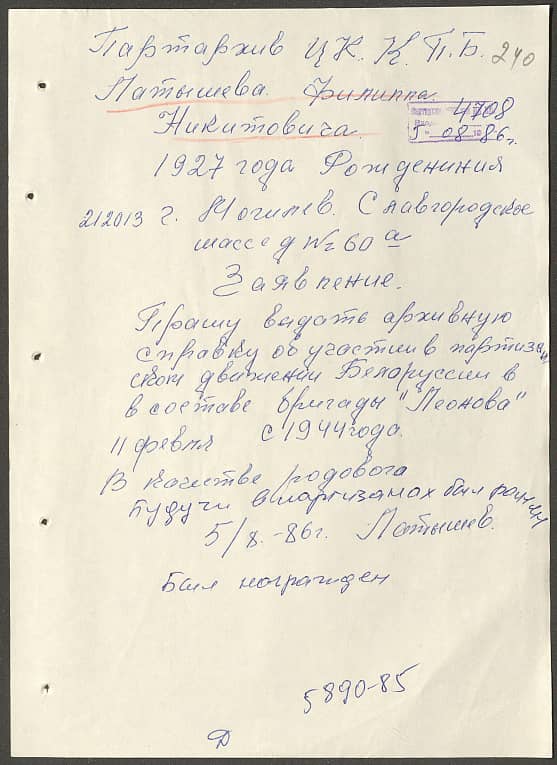 Партархив ЦК. К. П.Б. 240
Латышева. Филиппа
4708
Никитовича.
5 - 08 - 86г.
1927 года Рожденини
212013 г. Могилев. Славгородское
шассе д № 60 а
Заявление.
Прашу выдать архивную
справку об участии в партизан
ском движении Белоруссии в
в составе бригады "Леонова"
11 февпя с 1944 года.
В качестве родовога
будучи в партизанах был ранен
5/8.-86г. Латышев.
Был награжден
5890-85
Д